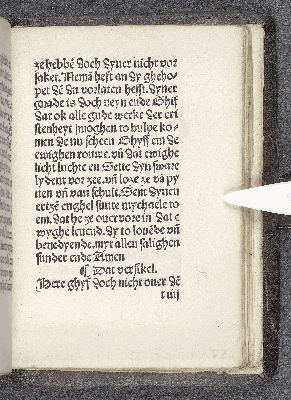 ze hebbē doch dyner nicht vor
saket. Nemā heft an dy gheho-
pet de du vorlaten hefst. dyner
gnade is doch neyn ende Ghif
dat ok alle gude werke der cri
stenheyt ymoghen to hulpe ko-
men de nu scheen Ghyff em de
ewighen rouwe. vn̄ dat ewighe
licht luchte en Sette dyn sware
lydent vor zee. vn̄ loze ze vā py
nen vn̄ van schult. Sent dynen
ertzē enghel sunte mychaele to
em. dat he ze ouervore in dat e
wyghe leuend. dy to louēde vn̄
benedyende. myt allen salighen
sunder ende Amen
¶ Dat versikel.
Here ghyf doch nicht ouer dē
t iiij